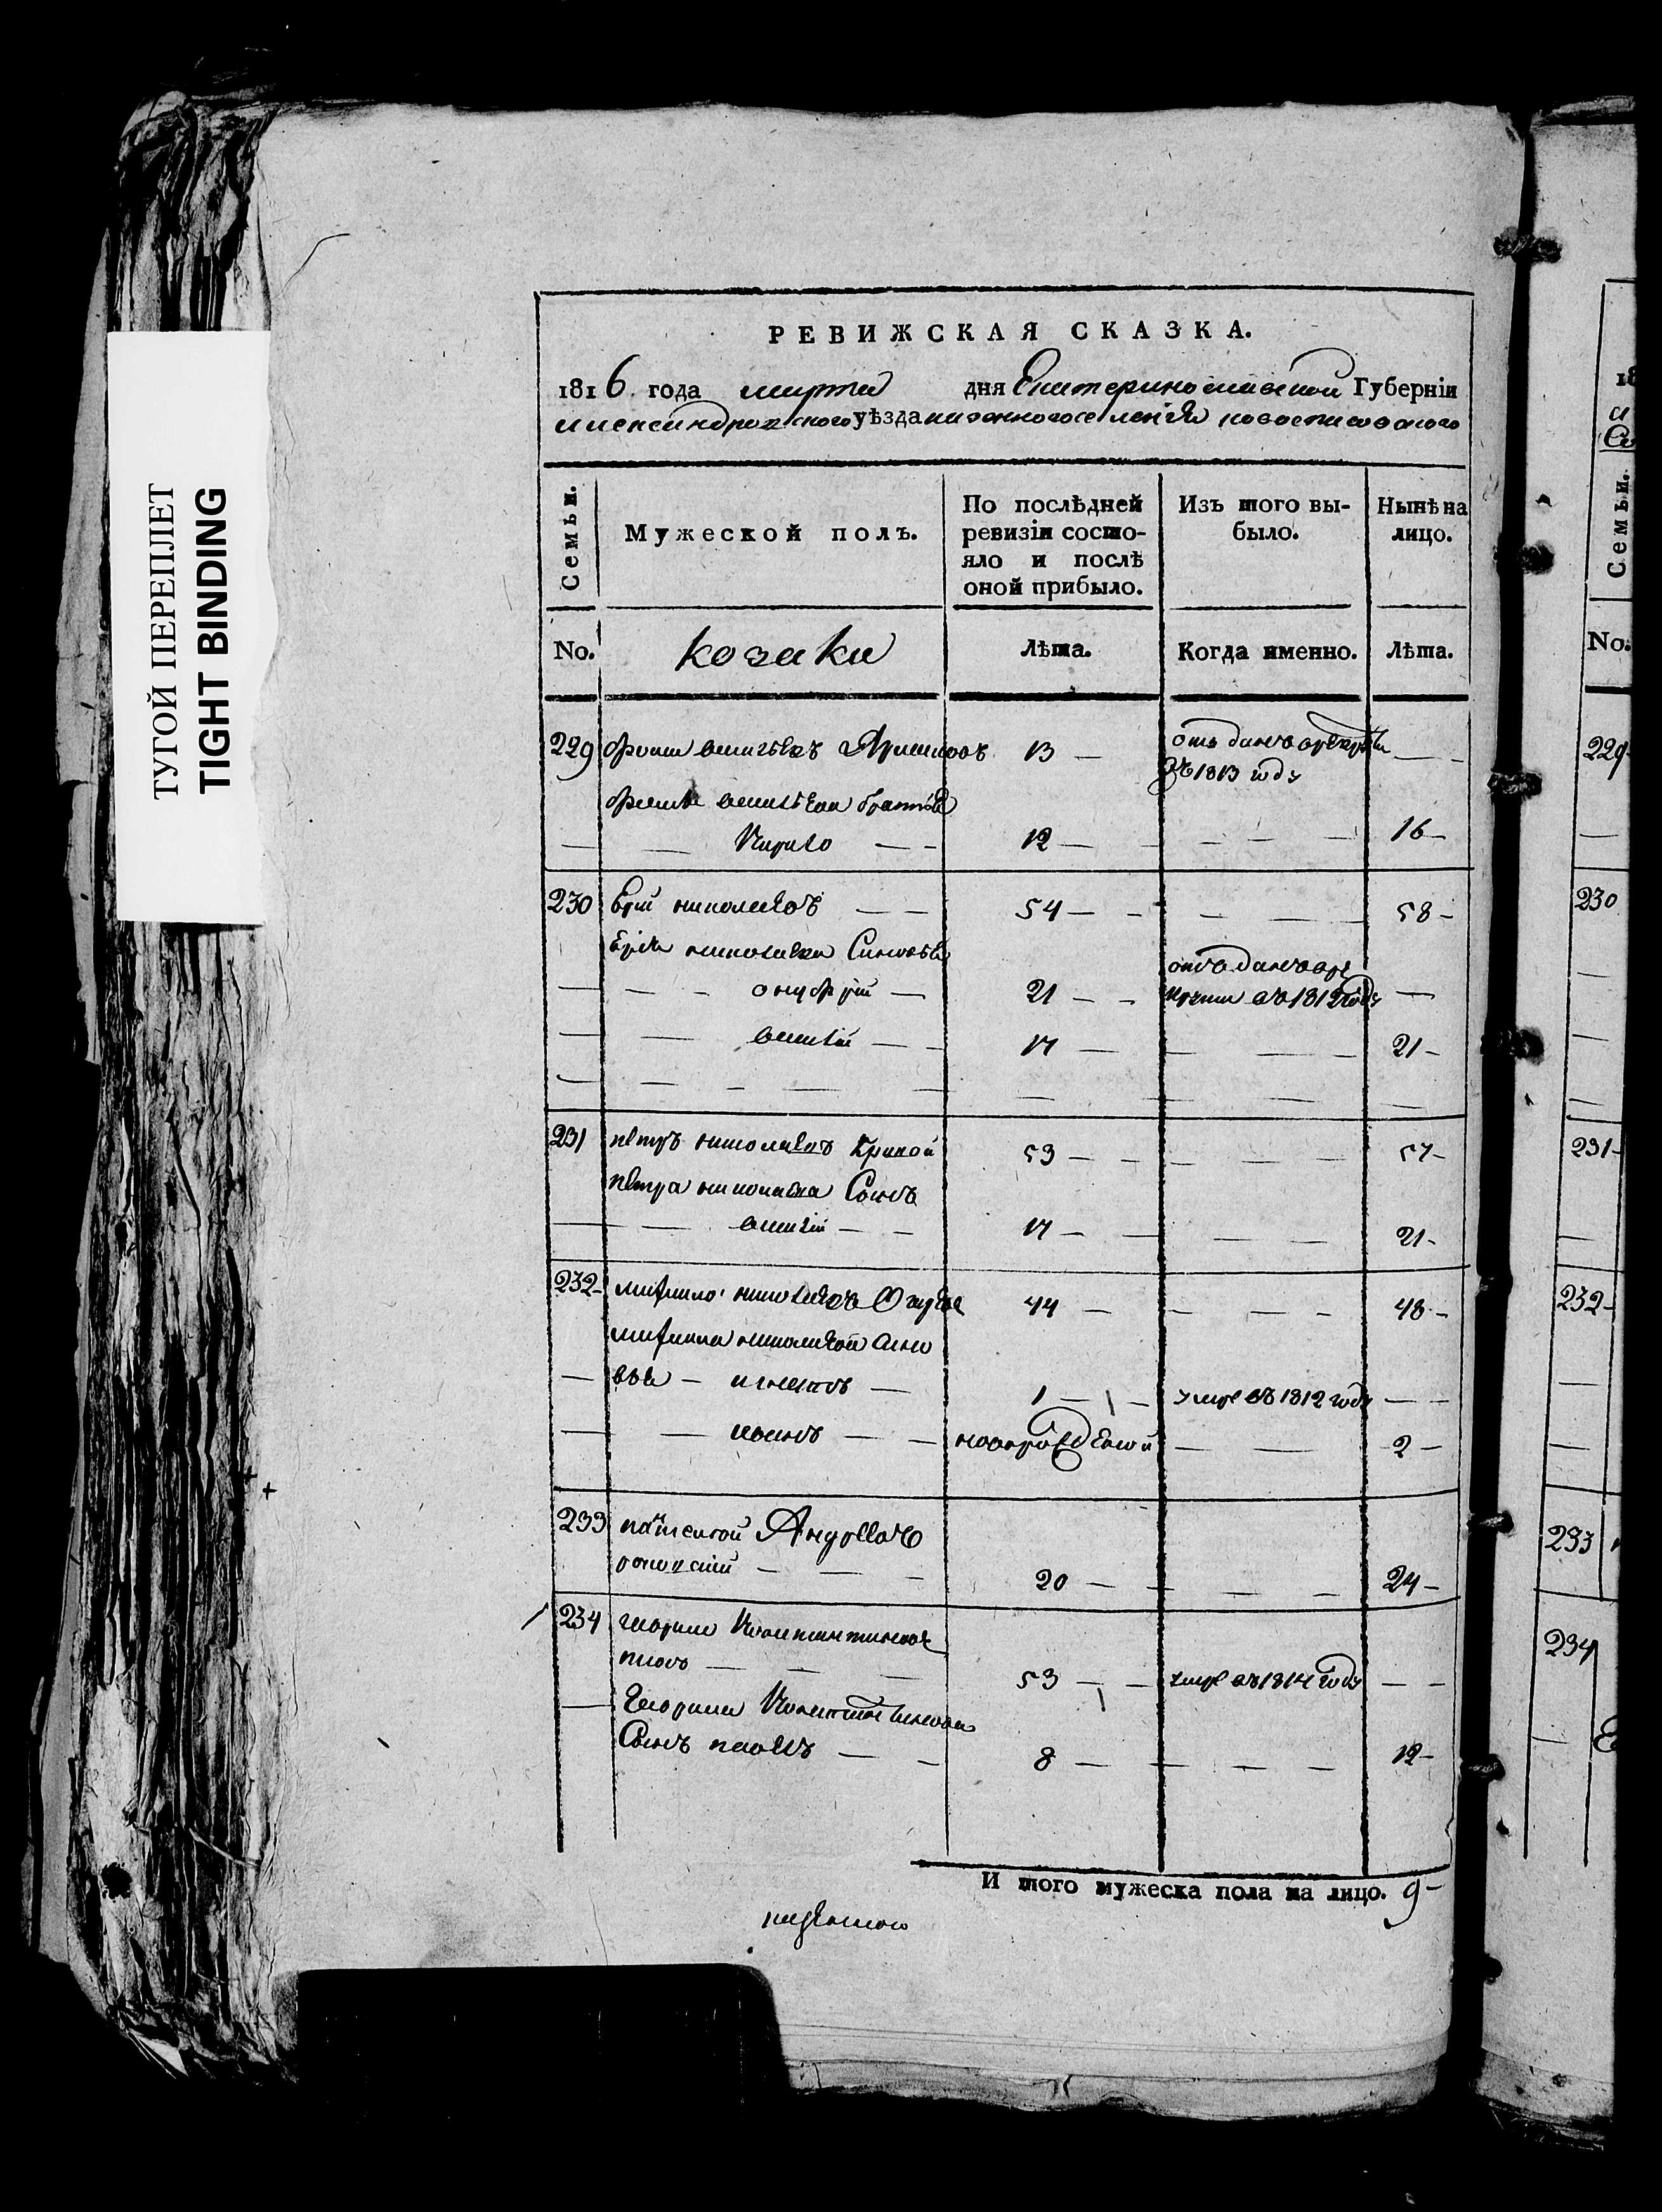 ТУГОЙ ПЕРЕПЛЕТ
TIGHT BINDING
РЕВИЖСКАЯ СКАЗКА.
1816 года марта дня Екатеринославской Губерніи
александровского уѣзда казенного селенія
Семьи.
Мужеской полъ.
По послѣдней ревизіи состояло и послѣ оной прибыло.
Изъ того выбыло.
Нынѣ на лицо.
No.
козаки
Лѣта.
Когда именно.
Лѣта.
229 13 — отданъ врекруты — —
въ 1813 году
братья
— — Кирило — — 12 — — — — 16 —
230 николаевъ — — 54 — — — — — 58 —
николаева Сыновья
отданъ вре
— — — онуфрій — 21 — — круты въ 1812 году —
— — василій — — 17 — — — — 21 —
231 петръ николаевъ Кривой 53 — — — — — 57 —
петра николаева Сынъ
— — василій — — 17 — — — — — 21 —
232 михаило николаевъ 44 — — — — 48 —
михаила сыно
— вья — игнатъ — 1 — — умре въ 1812 году — —
— — иванъ — — новорожденой — — 2 —
233 Андреевъ
— — — 20 — — — — 24 —
234 георги Константиновъ
— — — 53 — — умре въ 1814 году — —
— Георгия Константинова
Сынъ павелъ — — 8 — — — — 12 —
И того мужеска пола на лицо. 9 —
229
230
231
232
233
234
No.
Семьи.